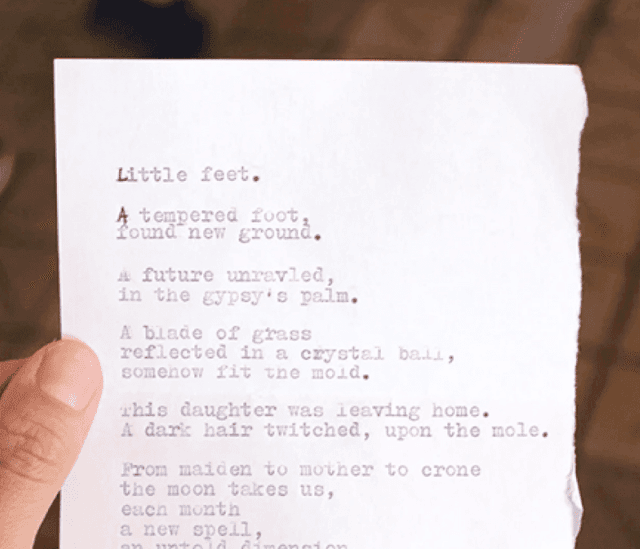 Little feet.
A tempered foot,
found new ground.
A future unravled,
in the gypsy's palm.
A blade of grass
reflected in a crystal ball,
somehow fit the mold.
This daughter was leaving home.
A dark hair twitched, upon the mole.
From maiden to mother to crone
the moon takes us,
each month
a new spell,
an untold dimension